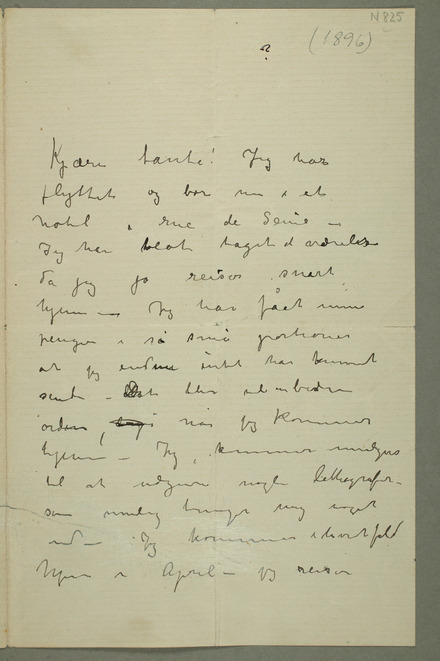 N 825
(1896)
?
Kjære tante! Jeg har
flyttet og bor nu i et
hotel i rue de Seine –
Jeg har blot taget et værelse
da jeg jo reiser snart
hjem – Jeg har fået mine
penger i så små portioner
at jeg endnu intet har kunnet
sende – Det blir vel bedre
orden, når jeg kommer
hjem – Jeg kommer muligens
til at udgive nogle lithografier –
som mulig bringer mig noget
ind – Jeg kommer i hvert fald
hjem i April – jeg reiser